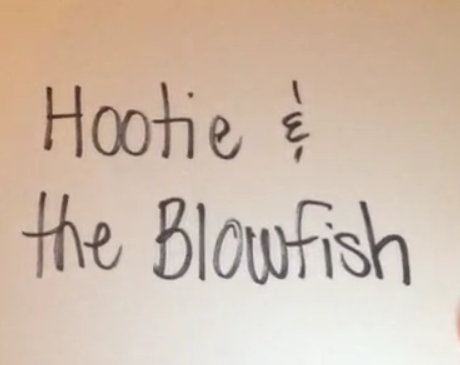 Hootie &
the Blowfish